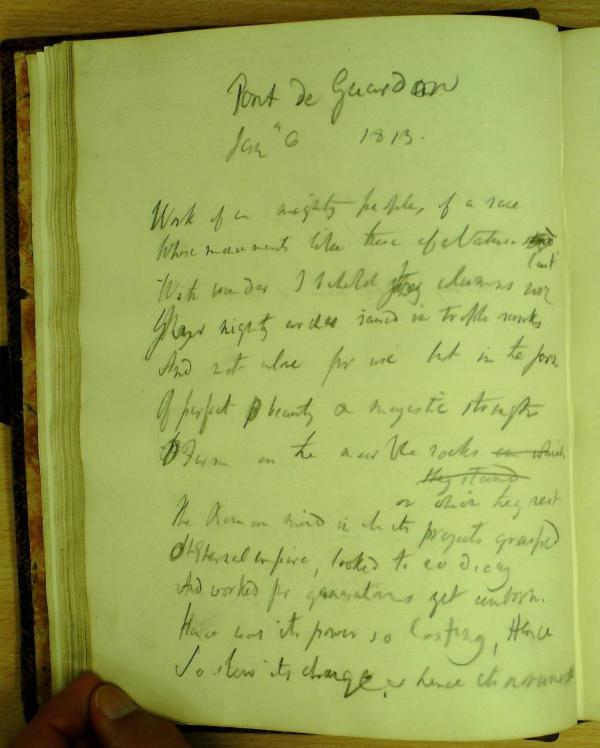 Pont de Guardon
Jany 6 1813.
Work of a mighty people, of a race
Whose monuments like those of Nature
last
With wonder I beheld columns
Your mighty arches raised in treble ranks
And not alone for use but in the form
Of perfect beauty & majestic strength
Firm on the marble rocks on which
they stand
on which they rest.
The Roman mind in all its projects grasped
Eternal empire, looked to no decay
And worked for generations yet unborn.
Hence was its power so lasting, Hence
So slow its change, & hence its monuments